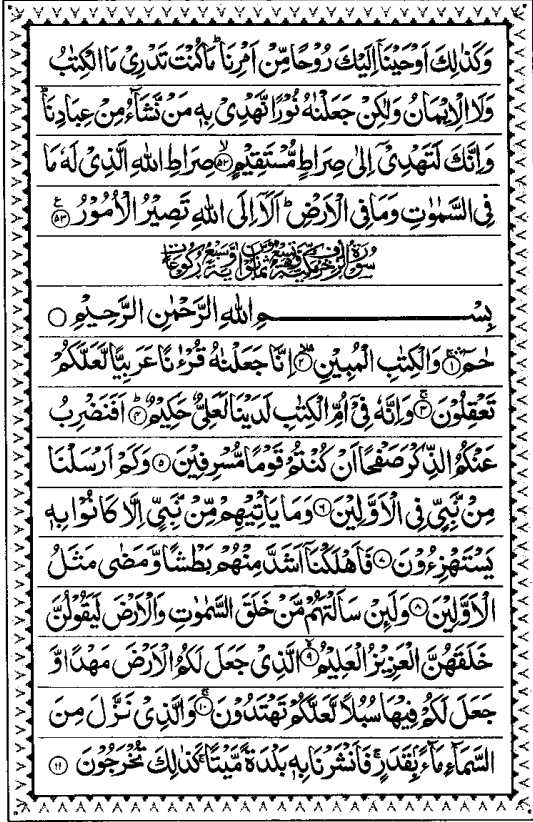 وَكَذٰلِكَ اَوْحَيْنَاۤ اِلَيْكَ رُوْحًا مِّنْ اَمْرِنَا ؕ مَا كُنْتَ تَدْرِيْ مَا الْكِتٰبُ
وَلَا الْاِيْمَانُ وَلٰكِنْ جَعَلْنٰهُ نُوْرًا نَّهْدِيْ بِهٖ مَنْ نَّشَآءُ مِنْ عِبَادِنَا ؕ
وَاِنَّكَ لَتَهْدِيْۤ اِلٰى صِرَاطٍ مُّسْتَقِيْمٍ ۙ﴿۵۲﴾ صِرَاطِ اللهِ الَّذِيْ لَهٗ مَا
فِي السَّمٰوٰتِ وَمَا فِي الْاَرْضِ ؕ اَلَاۤ اِلَى اللهِ تَصِيْرُ الْاُمُوْرُ ﴿۵۳﴾
بِسْمِ اللهِ الرَّحْمٰنِ الرَّحِيْمِ ○
حٰمٓ ﴿۱﴾ وَالْكِتٰبِ الْمُبِيْنِ ﴿۲﴾ اِنَّا جَعَلْنٰهُ قُرْءٰنًا عَرَبِيًّا لَّعَلَّكُمْ
تَعْقِلُوْنَ ﴿۳﴾ وَاِنَّهٗ فِيْۤ اُمِّ الْكِتٰبِ لَدَيْنَا لَعَلِيٌّ حَكِيْمٌ ﴿۴﴾ اَفَنَضْرِبُ
عَنْكُمُ الذِّكْرَ صَفْحًا اَنْ كُنْتُمْ قَوْمًا مُّسْرِفِيْنَ ﴿۵﴾ وَكَمْ اَرْسَلْنَا
مِنْ نَّبِيٍّ فِي الْاَوَّلِيْنَ ﴿۶﴾ وَمَا يَاْتِيْهِمْ مِّنْ نَّبِيٍّ اِلَّا كَانُوْا بِهٖ
يَسْتَهْزِءُوْنَ ﴿۷﴾ فَاَهْلَكْنَاۤ اَشَدَّ مِنْهُمْ بَطْشًا وَّمَضٰى مَثَلُ
الْاَوَّلِيْنَ ﴿۸﴾ وَلَئِنْ سَاَلْتَهُمْ مَّنْ خَلَقَ السَّمٰوٰتِ وَالْاَرْضَ لَيَقُوْلُنَّ
خَلَقَهُنَّ الْعَزِيْزُ الْعَلِيْمُ ۙ﴿۹﴾ الَّذِيْ جَعَلَ لَكُمُ الْاَرْضَ مَهْدًا وَّ
جَعَلَ لَكُمْ فِيْهَا سُبُلًا لَّعَلَّكُمْ تَهْتَدُوْنَ ۚ﴿۱۰﴾ وَالَّذِيْ نَزَّلَ مِنَ
السَّمَآءِ مَآءًۢ بِقَدَرٍ ۚ فَاَنْشَرْنَا بِهٖ بَلْدَةً مَّيْتًا ۚ كَذٰلِكَ تُخْرَجُوْنَ ﴿۱۱﴾